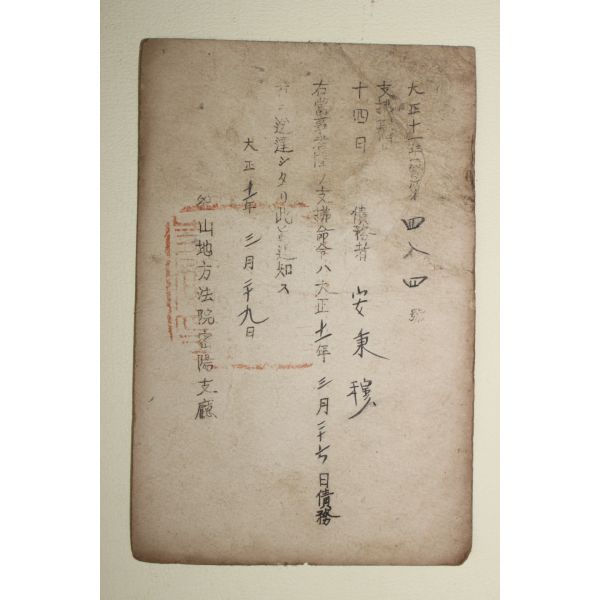 大正十一年 第四八四號
支拂
十四日 債務者 安東穆
右當事者 ノ支拂命令ハ大正十一年三月二十六日債務
者ニ送達シタリ此旨通知ス
大正十一年三月二十九日
山地方法院密陽支廳